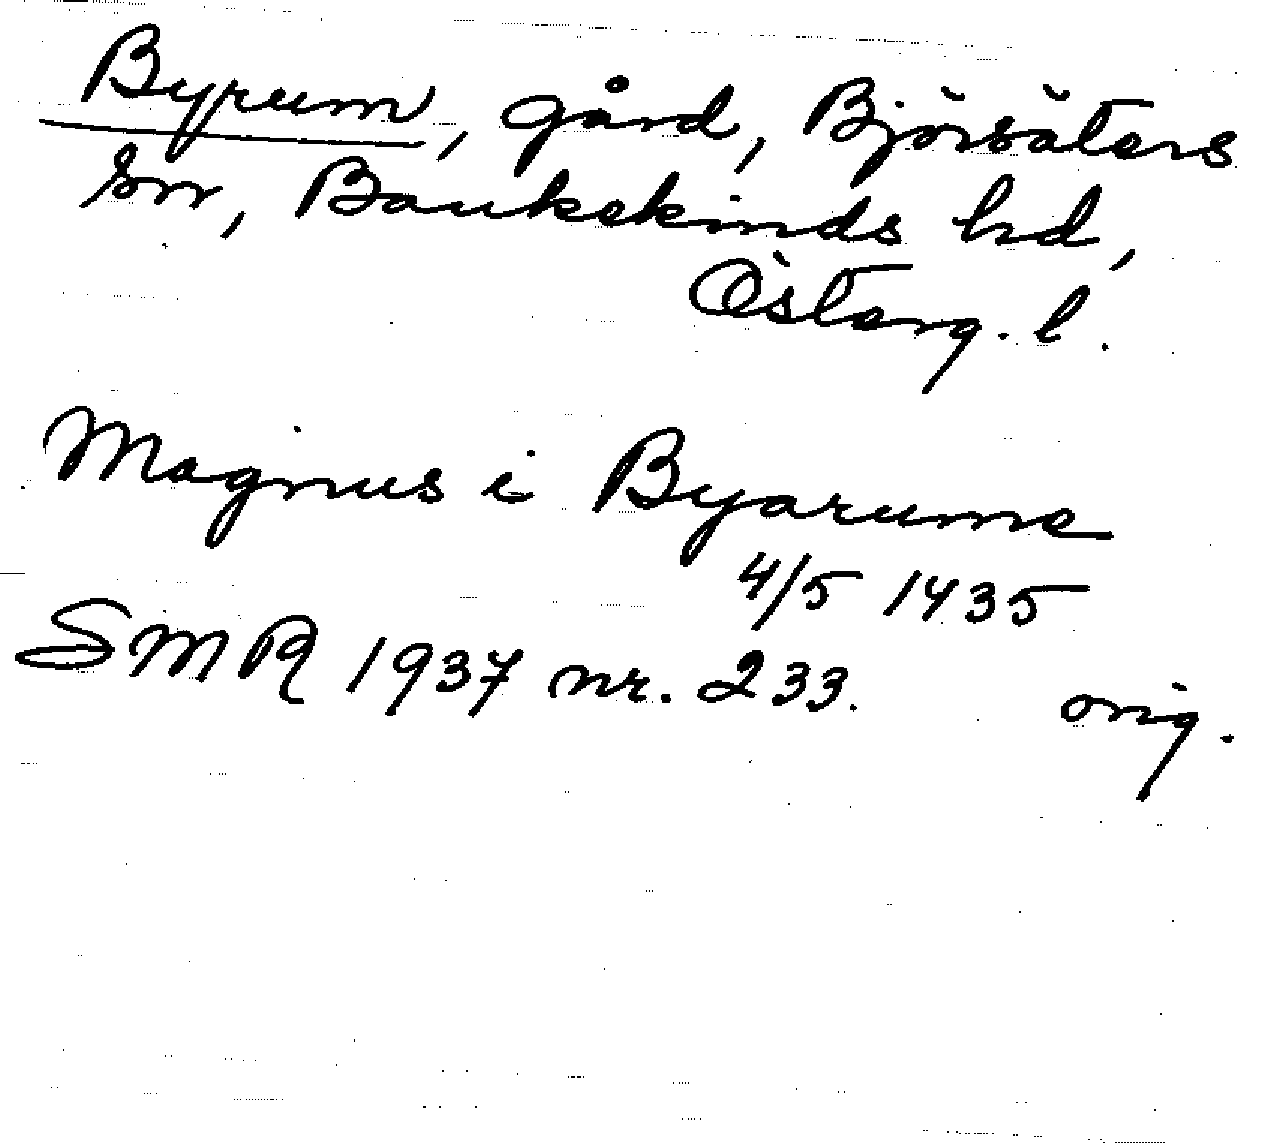 Byrum, gård, Björsäters
sn, Bankekinds hd,
Österg. l.
Magnus i Byarume
4/5 1435
SMR 1937 nr. 233. orig.